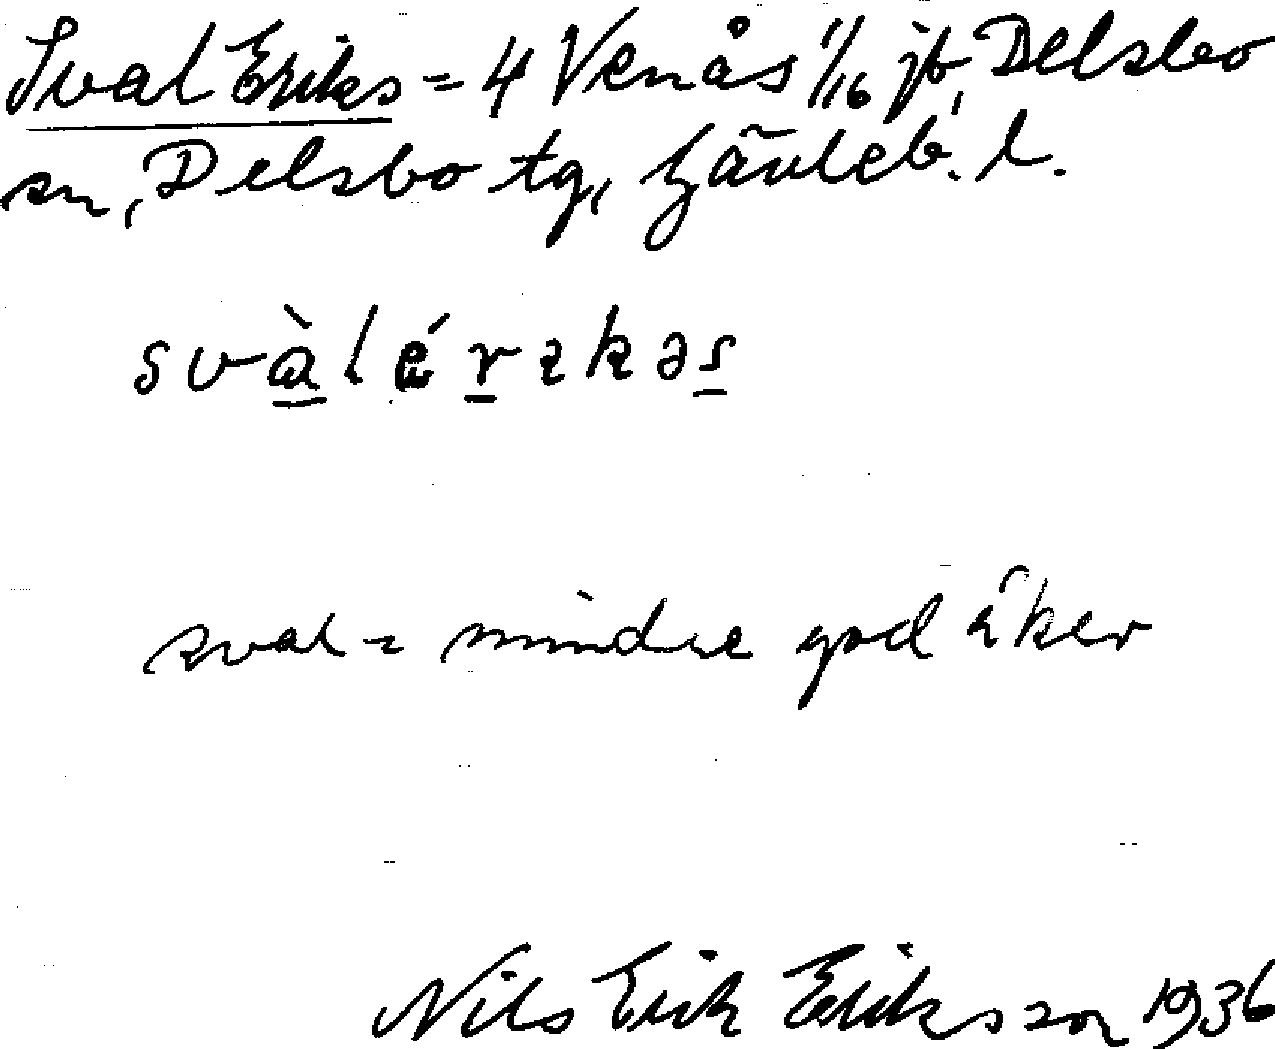 Sval Eriks = 4 Venås 1/16 jb, Delsbo
sn, Delsbo tg, Gävleb. l.
svàlérıkəs
sval = mindre god åker
Nils Erik Eriksson 1936